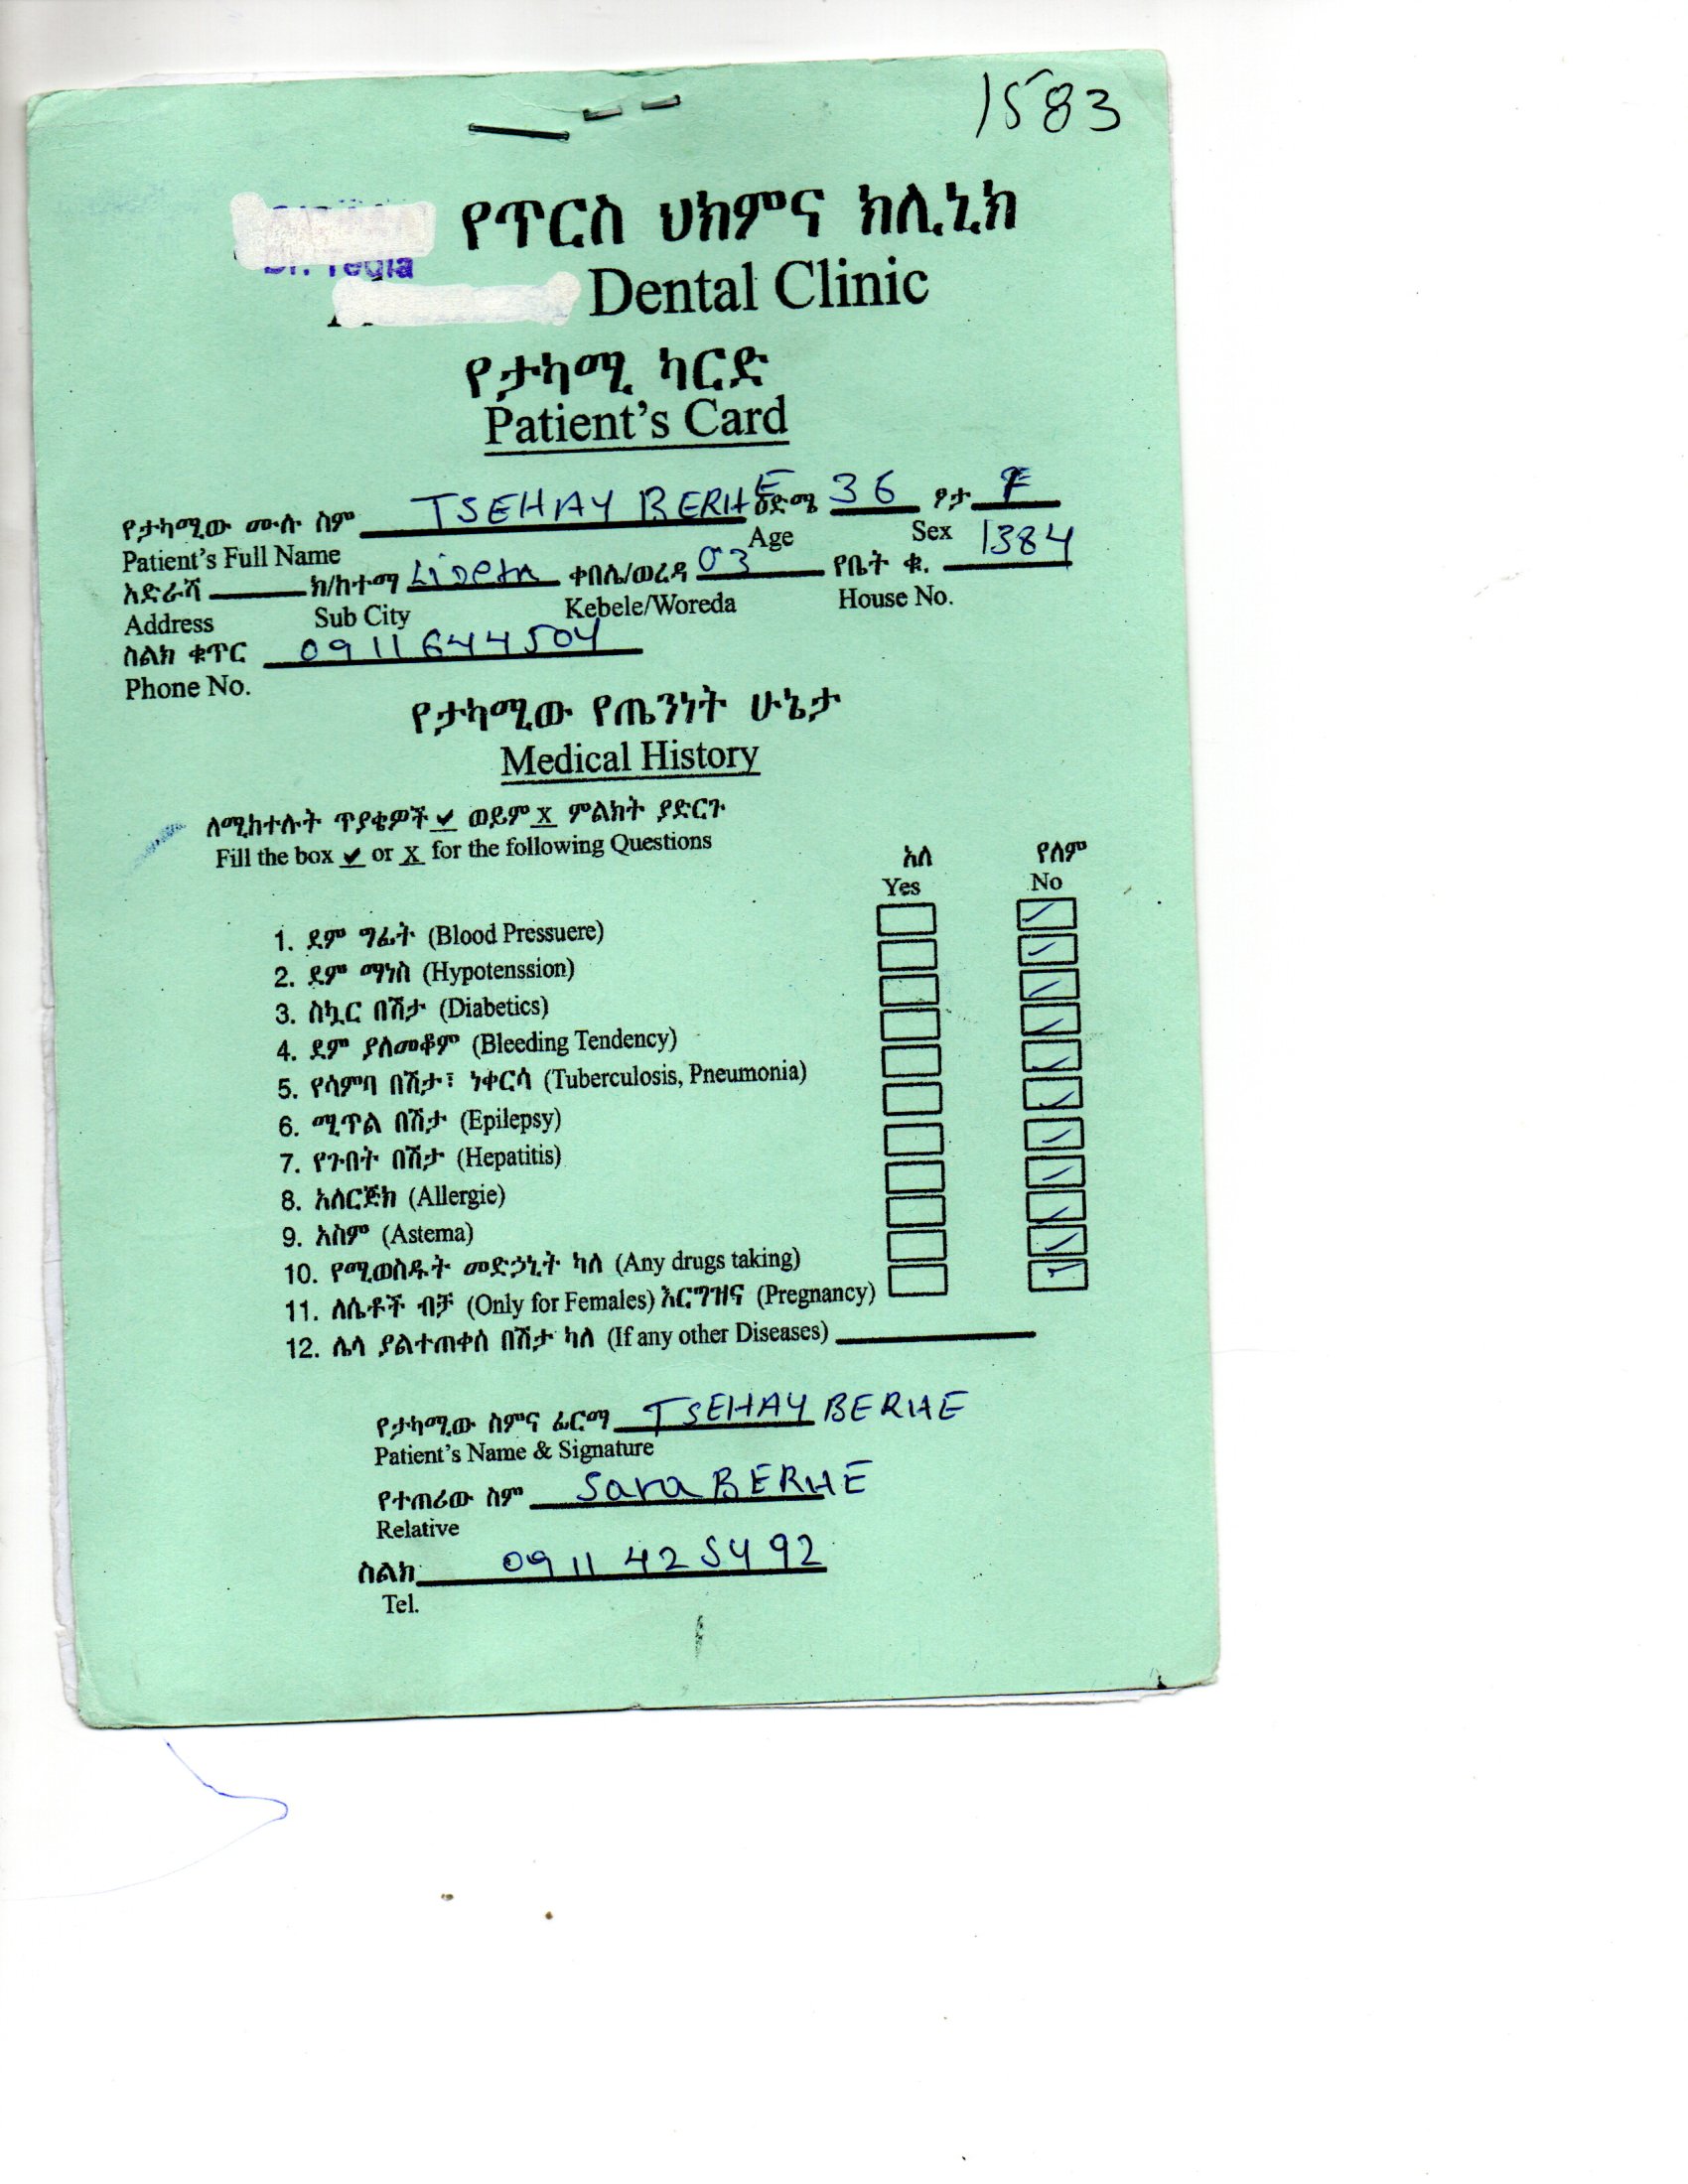 1583
የጥርስ ህክምና ክሊኒክ
Dental Clinic
የታካሚ ካርድ
Patient's Card
የታካሚው ሙሉ ስም TSEHAY BERHE ዕድሜ 36 ፆታ F
Patient's Full Name Age Sex
አድራሻ ክ/ከተማ Lideta ቀበሌ/ወረዳ 03 የቤት ቁ. 1384
Address Sub City Kebele/Woreda House No.
ስልክ ቁጥር 0911644504
Phone No.
የታካሚው የጤንነት ሁኔታ
Medical History
ለሚከተሉት ጥያቄዎች ✓ ወይም X ምልክት ያድርጉ
Fill the box ✓ or X for the following Questions
አለ የለም
Yes No
1. ደም ግፊት (Blood Pressuere) ✓
2. ደም ማነስ (Hypotenssion) ✓
3. ስኳር በሽታ (Diabetics) ✓
4. ደም ያለመቆም (Bleeding Tendency) ✓
5. የሳምባ በሽታ፣ ነቀርሳ (Tuberculosis, Pneumonia) ✓
6. ሚጥል በሽታ (Epilepsy) ✓
7. የጉበት በሽታ (Hepatitis) ✓
8. አለርጅክ (Allergie) ✓
9. አስም (Astema) ✓
10. የሚወስዱት መድኃኒት ካለ (Any drugs taking) ✓
11. ለሴቶች ብቻ (Only for Females) እርግዝና (Pregnancy) ✓
12. ሌላ ያልተጠቀሰ በሽታ ካለ (If any other Diseases)
የታካሚው ስምና ፊርማ TSEHAY BERHE
Patient's Name & Signature
የተጠሪው ስም Sara BERHE
Relative
ስልክ 0911 425492
Tel.